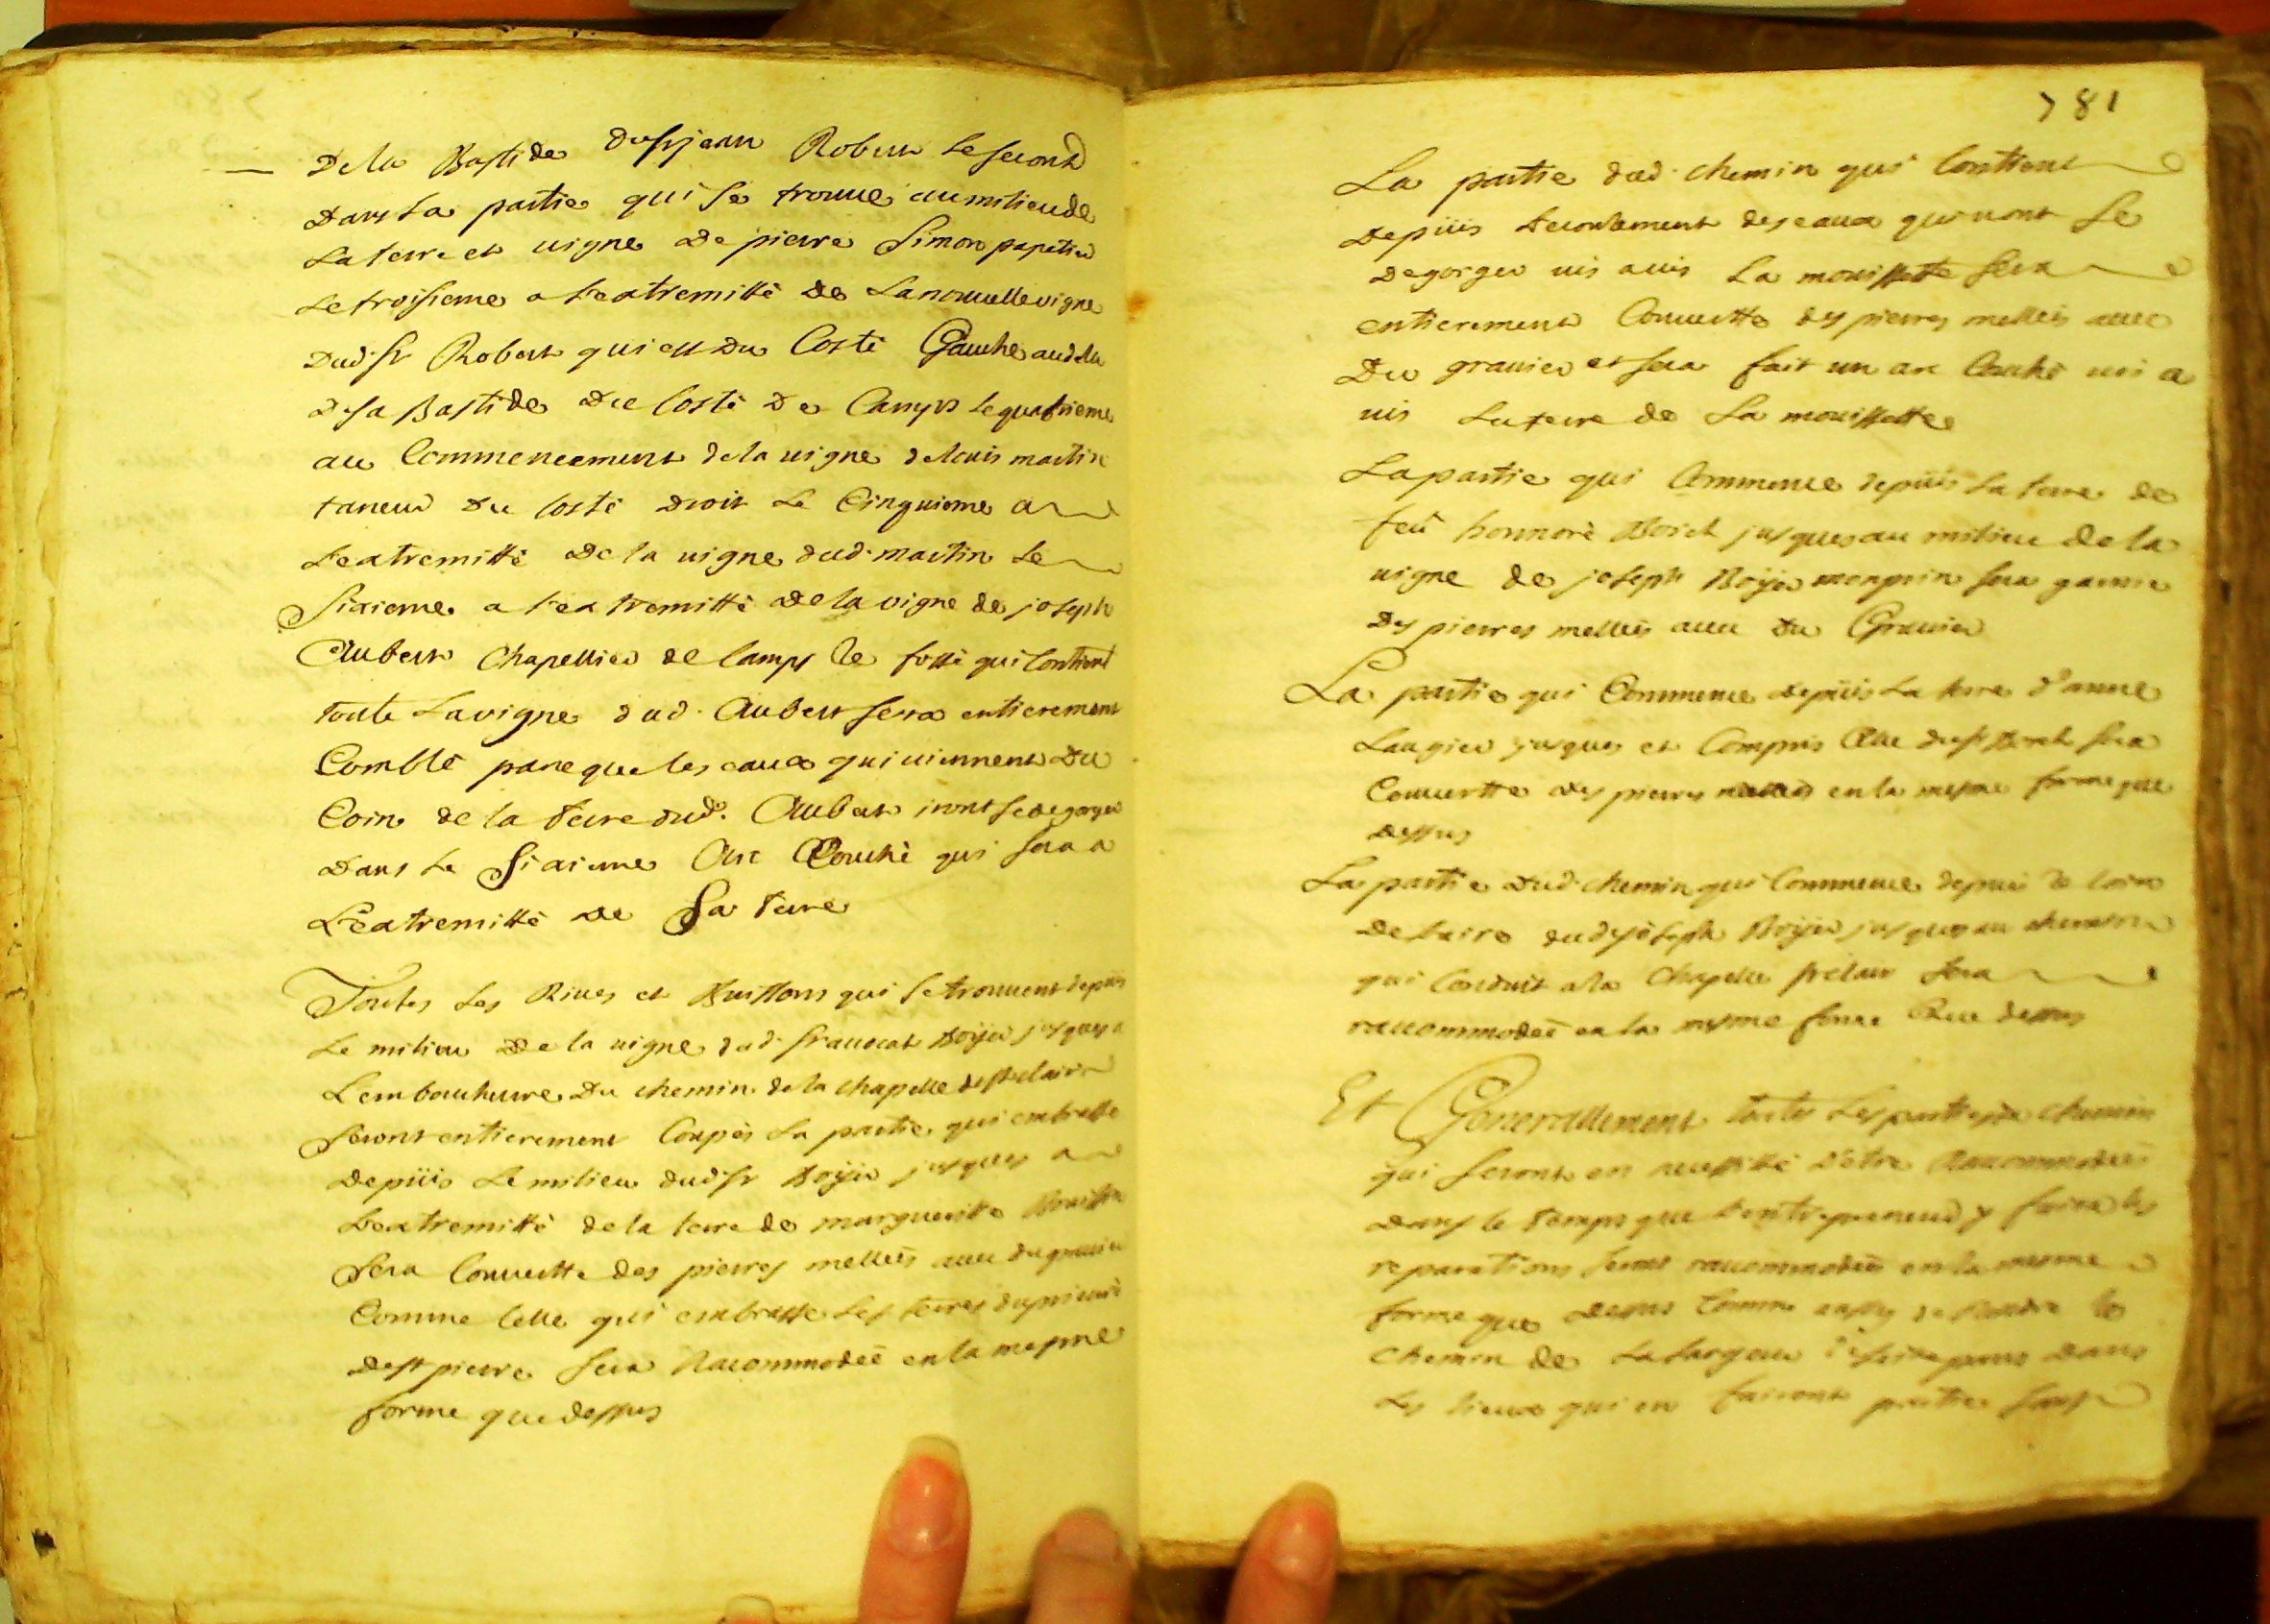 De la Bastide du sr jean Robert le second
Dans la partie qui se trouue au milieu de
la terre et uigne de pierre Simon papetier
le troisieme a l'extremitté de la nouuelle vigne
Dud. sr Robert qui est du Costé Gauche audela
de sa Bastide du Costé de Camps le quatrieme
au Commencement de la uigne de louis martin
taneur du Costé droit le Cinquieme a
l'extremitté de la uigne dud. martin le
Sixieme a l'extremitté de la vigne de joseph
Aubert Chapellier de Camps le fossé qui Contient
toute la vigne dud. Aubert sera entierement
Comblé parceque les eaux qui uiennent du
Coin de la terre dud. Aubert iront se degorger
dans le Sixieme Arc Couché qui sera a
L'extremitté de Sa terre
Toutes les Riues et Buissons qui se trouuent depuis
le milieu de la uigne dud. sr auocat Boyer jusques a
L'embouchure du chemin de la chapelle de ste claire
seront entierement Coupés la partie qui embrasse
depüis le milieu dud sr Boyer jusques a
l'extremitté de la terre de margueritte
sera Couuertte des pierres mellées auec du grauier
Comme Celle qui embrasse les terres du prieuré
de st pierre sera Racommodeé en la mesme
forme que dessus
781
La partie dud. chemin qui Contient
depüis l'ecoulement des eaux qui uont se
degorger uis auis la mouissette sera
entierement Couuertte des pierres mellées auec
du grauier et sera fait un arc Couché uis a
uis la terre de la mouissette
La partie qui Commence depüis la terre de
feü honnoré Borel jusques au milieu de la
uigne de joseph Boyer monprin sera garnie
des pierres mellées auec du Grauier
La partie qui Commence depüis la terre d'anne
Laugier jusques et Compris Celle du sr Borel sera
Couuertte des pierres mellées en la mesme forme que
dessus
La partie dud. chemin qui Commence depuis le coin
de l'aire dud joseph Boyer jusques au chemin
qui Conduit a la Chapelle ste clair sera
raccommodeé en la mesme forme Que dessus
Et Generallement toutes les parties du chemin
qui seront en necessitté d'etre Raccommodeés
dans le temps que l'entrepreneur y faira les
reparations seront raccommodeés en la mesme
forme que dessus Comme aussy de Rendre le
chemin de la largeur dans
les lieux qui en fairont partie sauf